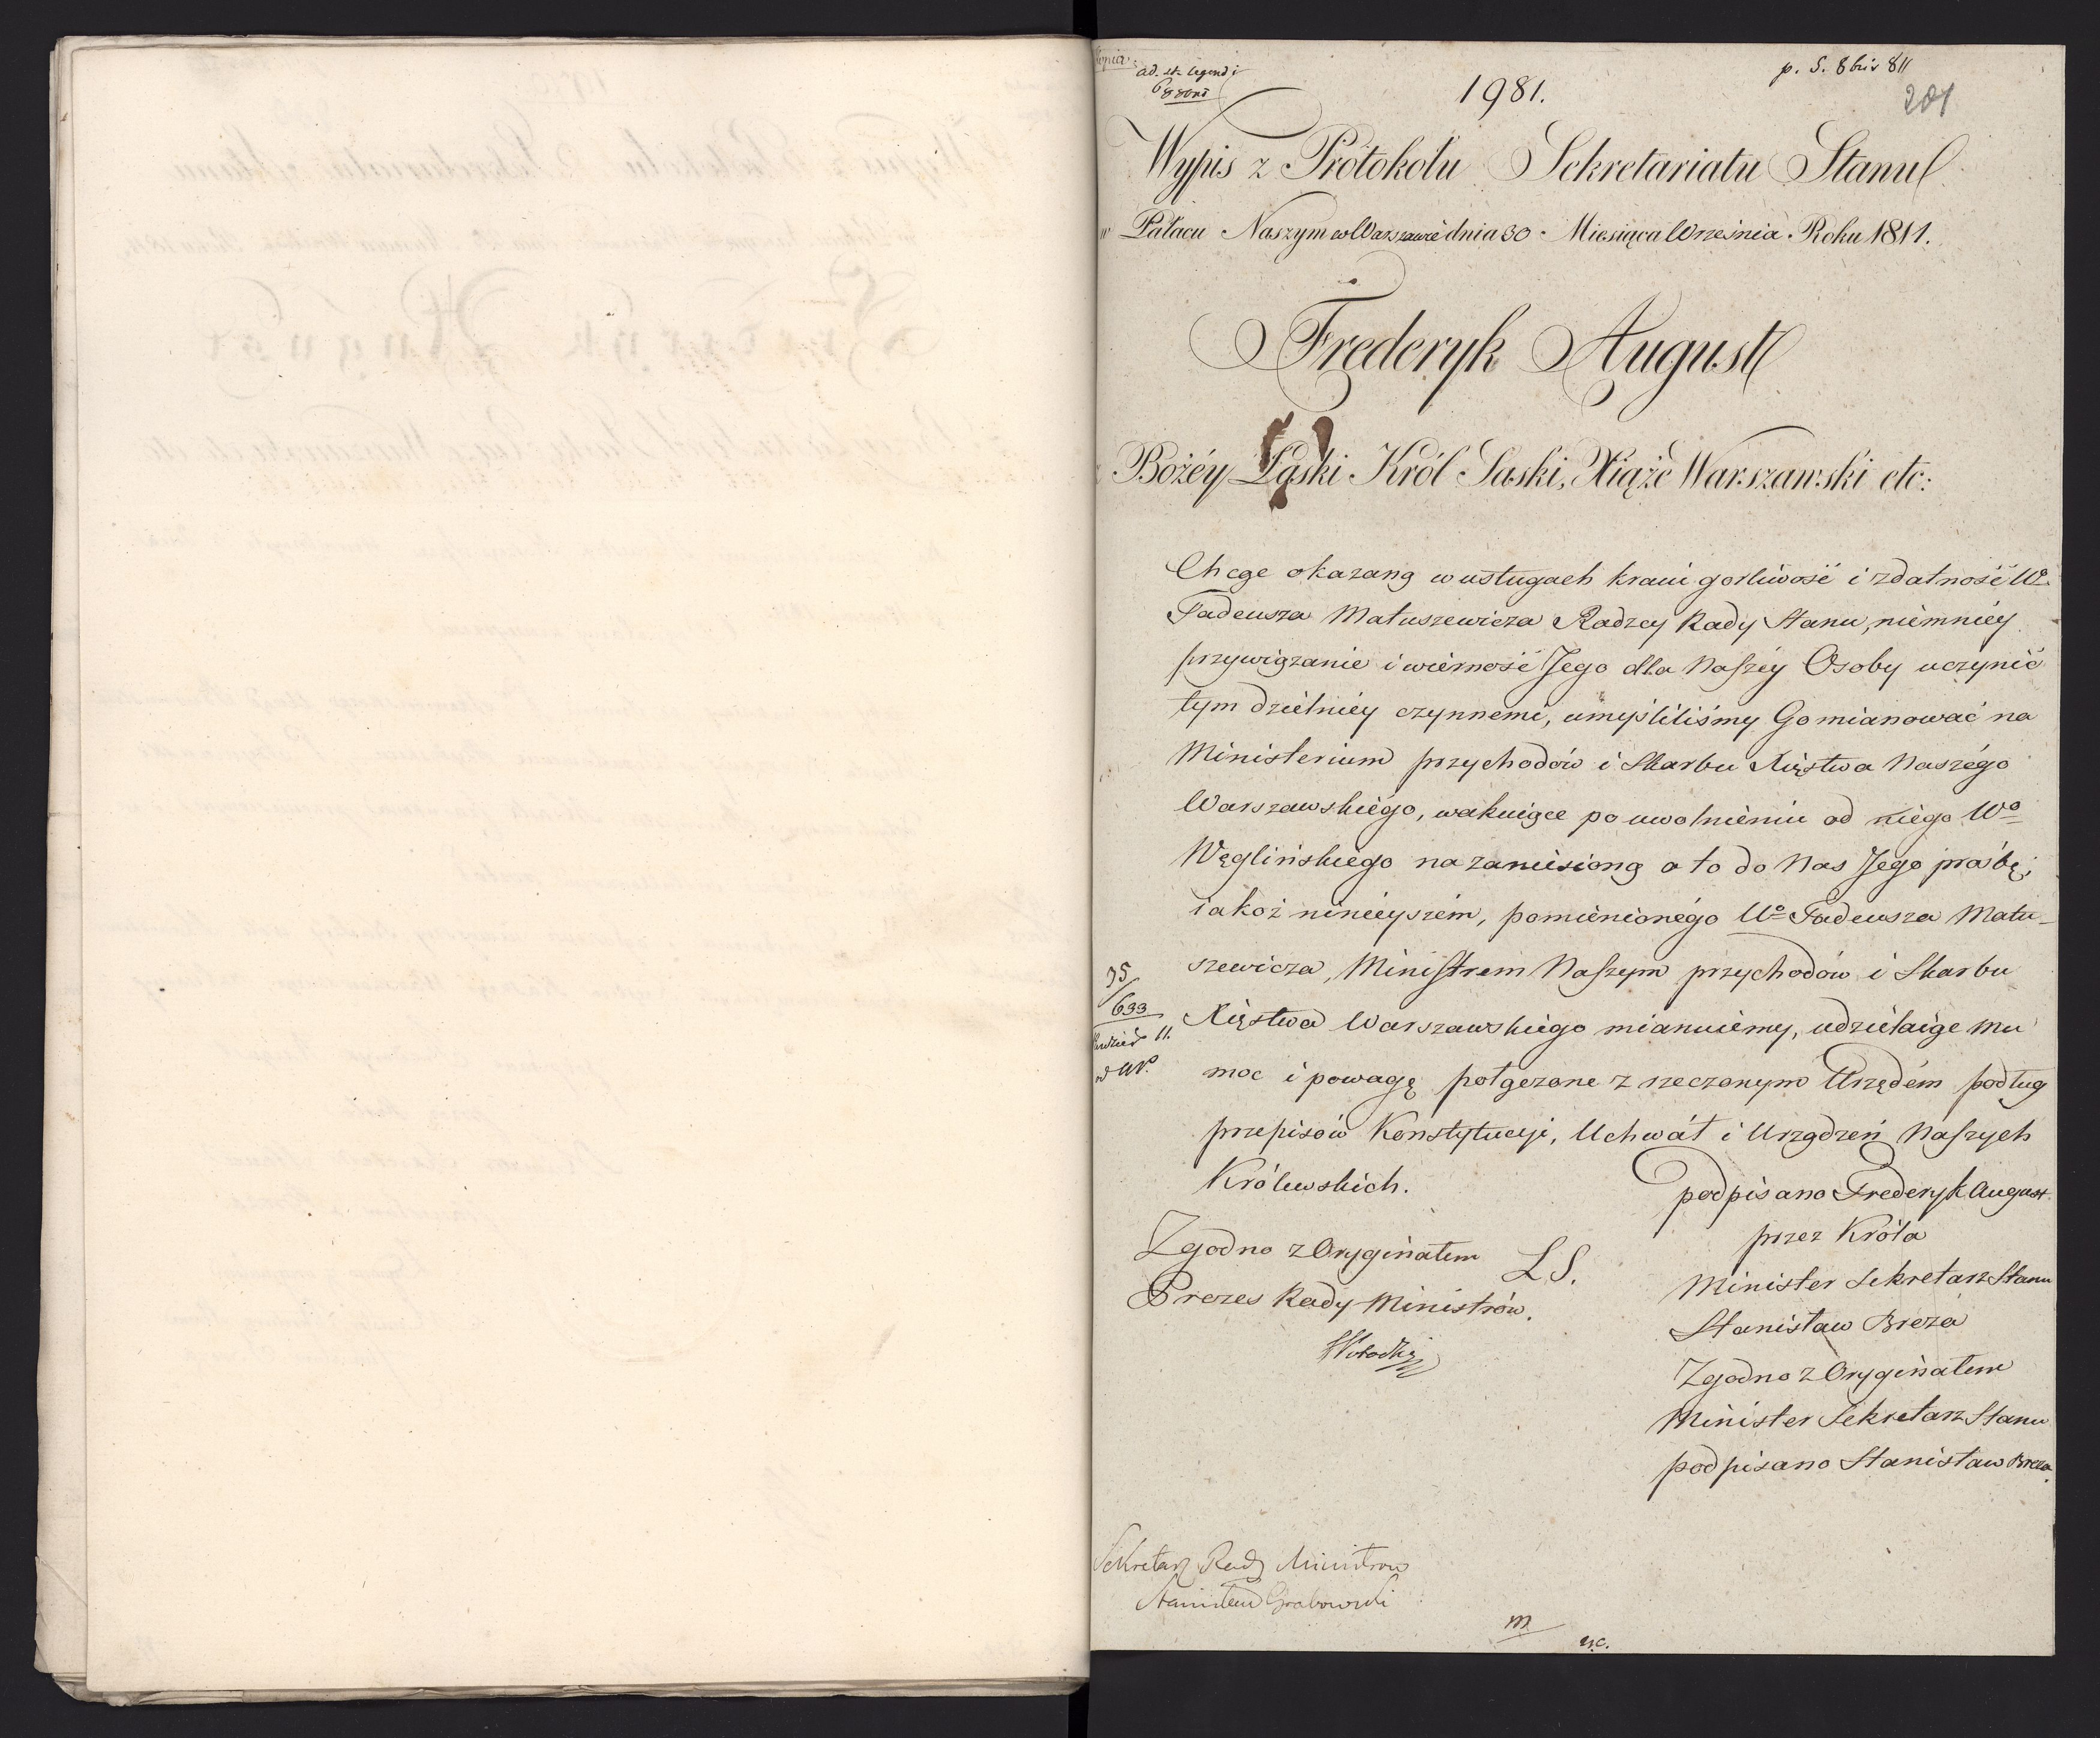 Kopia.
ad. st. legendi
1981.
p. 5. 8bris 811
201
Wypis z Protokołu Sekretariatu Stanu
w Pałacu Naszym w Warszawie dnia 30 Miesiąca Września Roku 1811.
Frederyk August
z Bożéy Łaski Król Saski, Xiąże Warszawski etc:
Chcąc okazaną w usługach kraiu gorliwość i zdatność Wo
Tadeusza Matuszewicza Radzcy Rady Stanu, niemniéy
przywiązanie i wierność Jego dla Naszéy Osoby uczynić
tym dzielniéy czynnemi, umyśliliśmy Go mianować na
Ministerium przychodów i Skarbu Xięstwa Naszégo
Warszawskiégo, wakuiące po uwolnieniu od niego Wo
Węglińskiego na zaniesioną o to do Nas Jego prośbę;
iakoż ninieyszém, pomienionégo Wo Tadeusza Matu-
szewicza, Ministrem Naszym przychodów i Skarbu
Xięstwa Warszawskiego mianuiemy, udzielaiąc mu
moc i powagę połączone z rzeczonym Urzędém podług
przepisów Konstytucyi, Uchwał i Urządzeń Naszych
Królewskich.
35/633
11.
podpisano Frederyk August
przez Króla
Minister Sekretarz Stanu
Stanisław Breza
Zgodno z Oryginałem
Minister Sekretarz Stanu
podpisano Stanisław Breza.
Zgodno z Oryginałem
L.S.
Prezes Rady Ministrów.
Sekretarz Rady Ministrow
Stanisław Grabowski
m